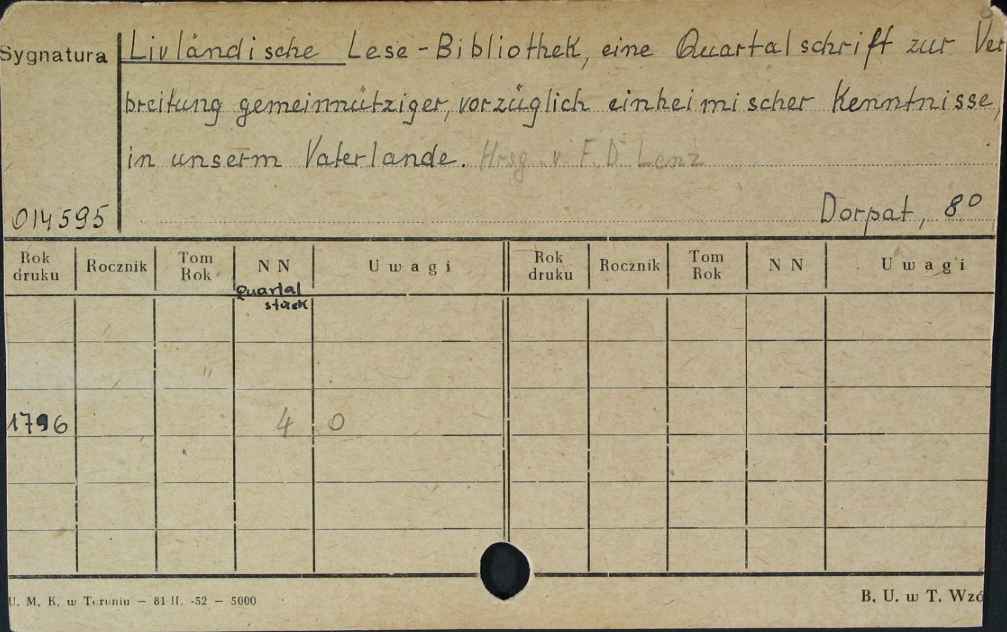 Sygnatura
Livländische Lese-Bibliothek, eine Quartalschrift zur Ver
breitung gemeinnütziger, vorzüglich einheimischer Kenntnisse,
in unserm Vaterlande. Hrsg. v. F. D. Lenz
014595
Dorpat, 8º
Rok druku Rocznik Tom Rok NN Uwagi Rok druku Rocznik Tom Rok NN Uwagi
Quartal
stück
1796 4 0
U. M. K. w Toruniu — 81 II. -52 — 5000
B. U. w T. Wzó